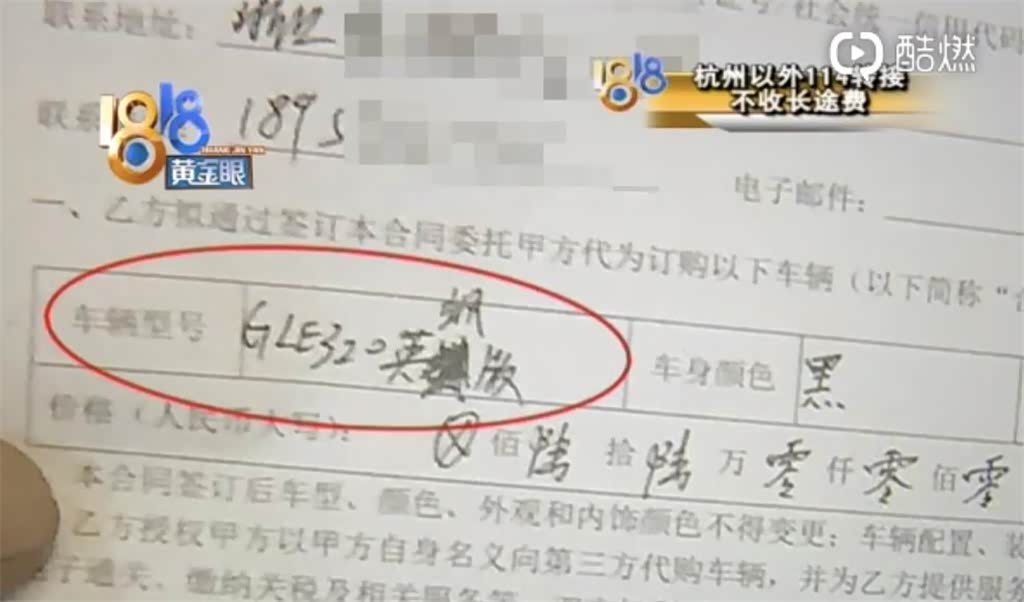 联系地址：浙江
社会统一信用代码
酷燃
1818
杭州以外114转接
不收长途费
联系
1895
1818
HUANG JIN YAN
黄金眼
电子邮件：
一、乙方拟通过签订本合同委托甲方代为订购以下车辆（以下简称“合
车辆型号 GLE320英 版 车身颜色 黑
价格（人民币大写）： 佰陆拾陆万零仟零佰零
本合同签订后车型、颜色、外观和内饰颜色不得变更；车辆配置、装
乙方授权甲方以甲方自身名义向第三方代购车辆，并为乙方提供服务
子通关、缴纳关税及相关服务等